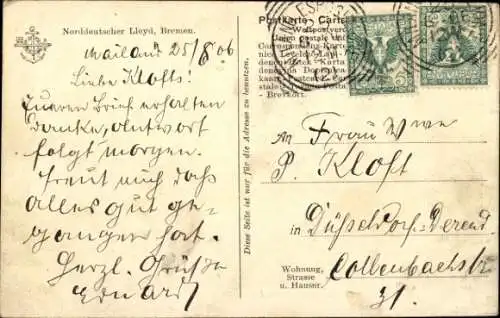 Norddeutscher Lloyd, Bremen.
Mailand 25/8 06
Liebe Klofts!
Eueren Brief erhalten
Danke, Antwort
folgt morgen.
Freut mich daß
alles gut ge-
gangen hat.
Herzl. Grüße
Eduard
Diese Seite ist nur für die Adresse zu benutzen.
Postkarte
Weltpostverein
Union postale
Brevkort.
An Frau Wwe
P. Kloft
in Düsseldorf-Derend.
Wohnung,
Strasse
u. Hausnr.
Collenbachstr
31.